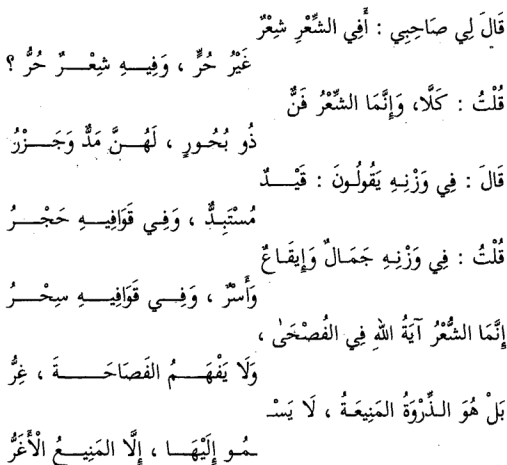 قَالَ لِي صَاحِبِي : أَفِي الشِّعْرِ شِعْرٌ
غَيْرُ حُرٍّ ، وَفِيهِ شِعْرٌ حُرُّ ؟
قُلْتُ : كَلَّا، وَإِنَّمَا الشِّعْرُ فَنٌّ
ذُو بُحُورٍ ، لَهُنَّ مَدٌّ وَجَزْرُ
قَالَ : فِي وَزْنِهِ يَقُولُونَ : قَيْدٌ
مُسْتَبِدٌّ ، وَفِي قَوَافِيهِ حَجْرُ
قُلْتُ : فِي وَزْنِهِ جَمَالٌ وَإِيقَاعٌ
وَأَسْرٌ ، وَفِي قَوَافِيهِ سِحْرُ
إِنَّمَا الشُّعْرُ آيَةُ اللهِ فِي الفُصْحَىٰ ،
وَلَا يَفْهَمُ الفَصَاحَةَ ، غِرُّ
بَلْ هُوَ الذِّرْوَةُ المَنِيعَةُ ، لَا يَسْـ
ـمُو إِلَيْهَا ، إِلَّا المَنِيعُ الْأَغَرُّ